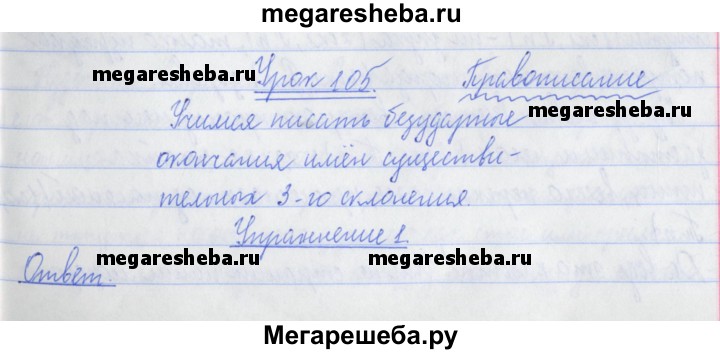 megaresheba.ru
Урок 105. Правописание
megaresheba.ru
Учимся писать безударные
megaresheba.ru
окончания имён существи-
тельных 3-го склонения.
Упражнение 1.
megaresheba.ru megaresheba.ru
Ответ.
Мегарешеба.ру